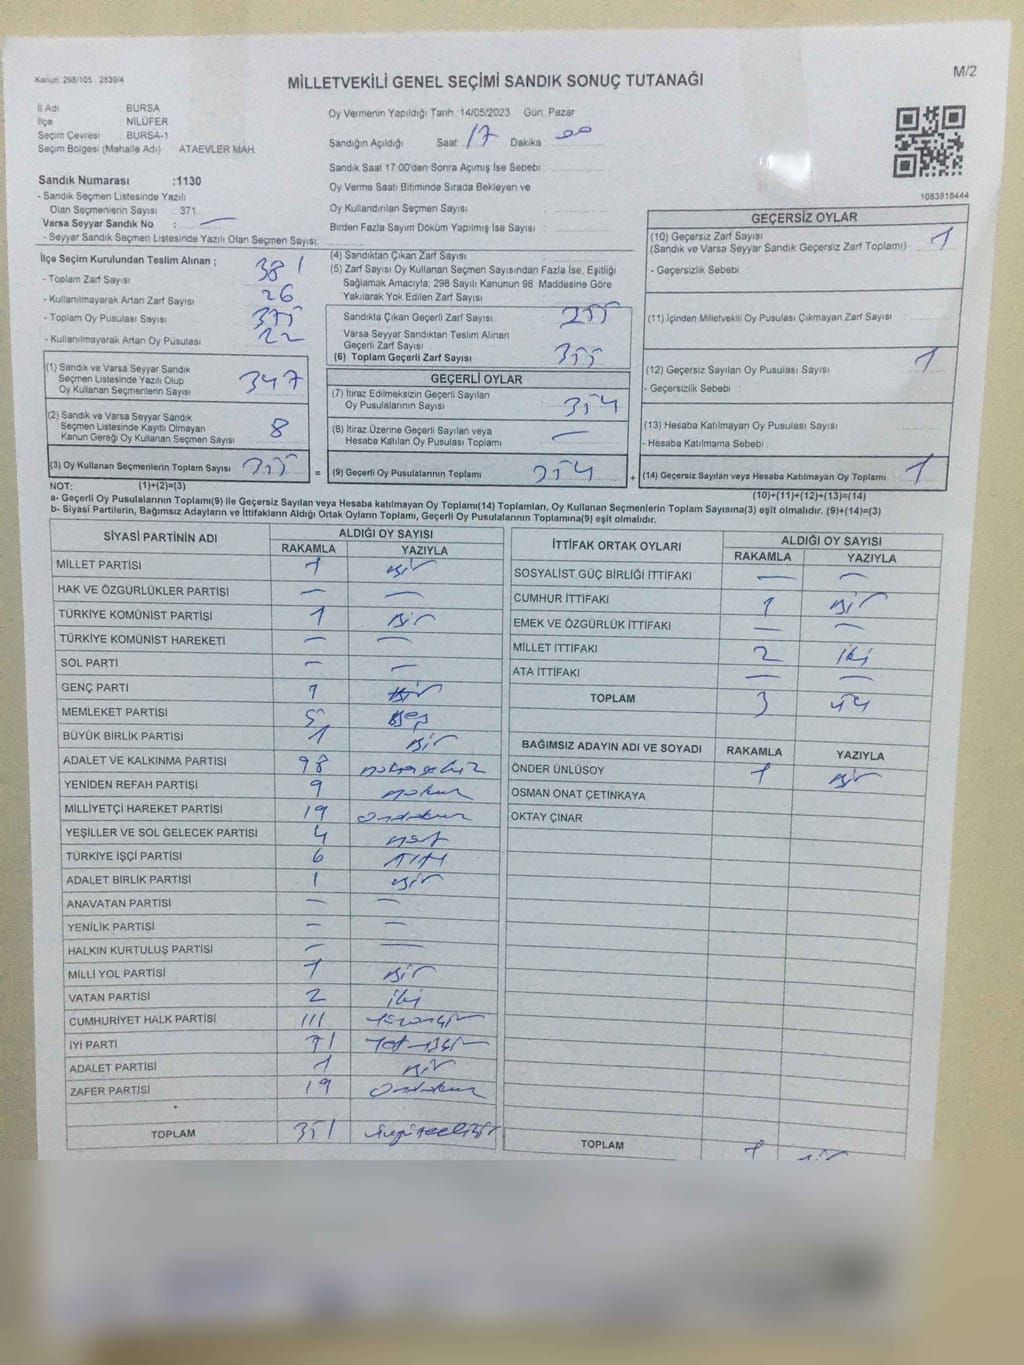 Kanun: 298/105 , 2839/4
MİLLETVEKİLİ GENEL SEÇİMİ SANDIK SONUÇ TUTANAĞI
M/2
İl Adı BURSA
İlçe NİLÜFER
Seçim Çevresi BURSA-1
Seçim Bölgesi (Mahalle Adı) ATAEVLER MAH.
Oy Vermenin Yapıldığı Tarih :14/05/2023 Gün: Pazar
Sandığın Açıldığı Saat 17 Dakika 00
Sandık Saat 17:00'den Sonra Açımış İse Sebebi
Oy Verme Saati Bitiminde Sırada Bekleyen ve
Oy Kullandırılan Seçmen Sayısı
Birden Fazla Sayım Döküm Yapılmış İse Sayısı :
1083818444
Sandık Numarası :1130
- Sandık Seçmen Listesinde Yazılı
Olan Seçmenlerin Sayısı : 371
Varsa Seyyar Sandık No : —
- Seyyar Sandık Seçmen Listesinde Yazılı Olan Seçmen Sayısı:
İlçe Seçim Kurulundan Teslim Alınan ;
- Toplam Zarf Sayısı 381
- Kullanılmayarak Artan Zarf Sayısı 26
- Toplam Oy Pusulası Sayısı 375
- Kullanılmayarak Artan Oy Pusulası 22
(1) Sandık ve Varsa Seyyar Sandık
Seçmen Listesinde Yazılı Olup
Oy Kullanan Seçmenlerin Sayısı 347
(2) Sandık ve Varsa Seyyar Sandık
Seçmen Listesinde Kayıtlı Olmayan
Kanun Gereği Oy Kullanan Seçmen Sayısı 8
(3) Oy Kullanan Seçmenlerin Toplam Sayısı 355
(4) Sandıktan Çıkan Zarf Sayısı
(5) Zarf Sayısı Oy Kullanan Seçmen Sayısından Fazla İse, Eşitliği
Sağlamak Amacıyla; 298 Sayılı Kanunun 98. Maddesine Göre
Yakılarak Yok Edilen Zarf Sayısı
Sandıkta Çıkan Geçerli Zarf Sayısı 255
Varsa Seyyar Sandıktan Teslim Alınan
Geçerli Zarf Sayısı
(6) Toplam Geçerli Zarf Sayısı 355
GEÇERLİ OYLAR
(7) İtiraz Edilmeksizin Geçerli Sayılan
Oy Pusulalarının Sayısı 354
(8) İtiraz Üzerine Geçerli Sayılan veya
Hesaba Katılan Oy Pusulası Toplamı —
= (9) Geçerli Oy Pusulalarının Toplamı 354
GEÇERSİZ OYLAR
(10) Geçersiz Zarf Sayısı
(Sandık ve Varsa Seyyar Sandık Geçersiz Zarf Toplamı) 1
- Geçersizlik Sebebi
(11) İçinden Milletvekili Oy Pusulası Çıkmayan Zarf Sayısı
(12) Geçersiz Sayılan Oy Pusulası Sayısı 1
- Geçersizlik Sebebi :
(13) Hesaba Katılmayan Oy Pusulası Sayısı
- Hesaba Katılmama Sebebi
+ (14) Geçersiz Sayılan veya Hesaba Katılmayan Oy Toplamı 1
NOT: (1)+(2)=(3)
(10)+(11)+(12)+(13)=(14)
a- Geçerli Oy Pusulalarının Toplamı(9) ile Geçersiz Sayılan veya Hesaba katılmayan Oy Toplamı(14) Toplamları, Oy Kullanan Seçmenlerin Toplam Sayısına(3) eşit olmalıdır. (9)+(14)=(3)
b- Siyasi Partilerin, Bağımsız Adayların ve İttifakların Aldığı Ortak Oyların Toplamı, Geçerli Oy Pusulalarının Toplamına(9) eşit olmalıdır.
SİYASİ PARTİNİN ADI
ALDIĞI OY SAYISI
RAKAMLA YAZIYLA
MİLLET PARTİSİ 1 Bir
HAK VE ÖZGÜRLÜKLER PARTİSİ — —
TÜRKİYE KOMÜNİST PARTİSİ 1 Bir
TÜRKİYE KOMÜNİST HAREKETİ — —
SOL PARTİ — —
GENÇ PARTİ 1 Bir
MEMLEKET PARTİSİ 5 Beş
BÜYÜK BİRLİK PARTİSİ 1 Bir
ADALET VE KALKINMA PARTİSİ 98 Doksansekiz
YENİDEN REFAH PARTİSİ 9 Dokuz
MİLLİYETÇİ HAREKET PARTİSİ 19 Ondokuz
YEŞİLLER VE SOL GELECEK PARTİSİ 4 Dört
TÜRKİYE İŞÇİ PARTİSİ 6 Altı
ADALET BİRLİK PARTİSİ 1 Bir
ANAVATAN PARTİSİ — —
YENİLİK PARTİSİ — —
HALKIN KURTULUŞ PARTİSİ — —
MİLLİ YOL PARTİSİ 1 Bir
VATAN PARTİSİ 2 iki
CUMHURİYET HALK PARTİSİ 111 Yüzonbir
İYİ PARTİ 71 Yetmişbir
ADALET PARTİSİ 1 Bir
ZAFER PARTİSİ 19 Ondokuz
TOPLAM 351 üçyüzellibir
İTTİFAK ORTAK OYLARI
ALDIĞI OY SAYISI
RAKAMLA YAZIYLA
SOSYALİST GÜÇ BİRLİĞİ İTTİFAKI — —
CUMHUR İTTİFAKI 1 Bir
EMEK VE ÖZGÜRLÜK İTTİFAKI — —
MİLLET İTTİFAKI 2 iki
ATA İTTİFAKI — —
TOPLAM 3 üç
BAĞIMSIZ ADAYIN ADI VE SOYADI RAKAMLA YAZIYLA
ÖNDER ÜNLÜSOY 1 Bir
OSMAN ONAT ÇETİNKAYA
OKTAY ÇINAR
TOPLAM 1 Bir